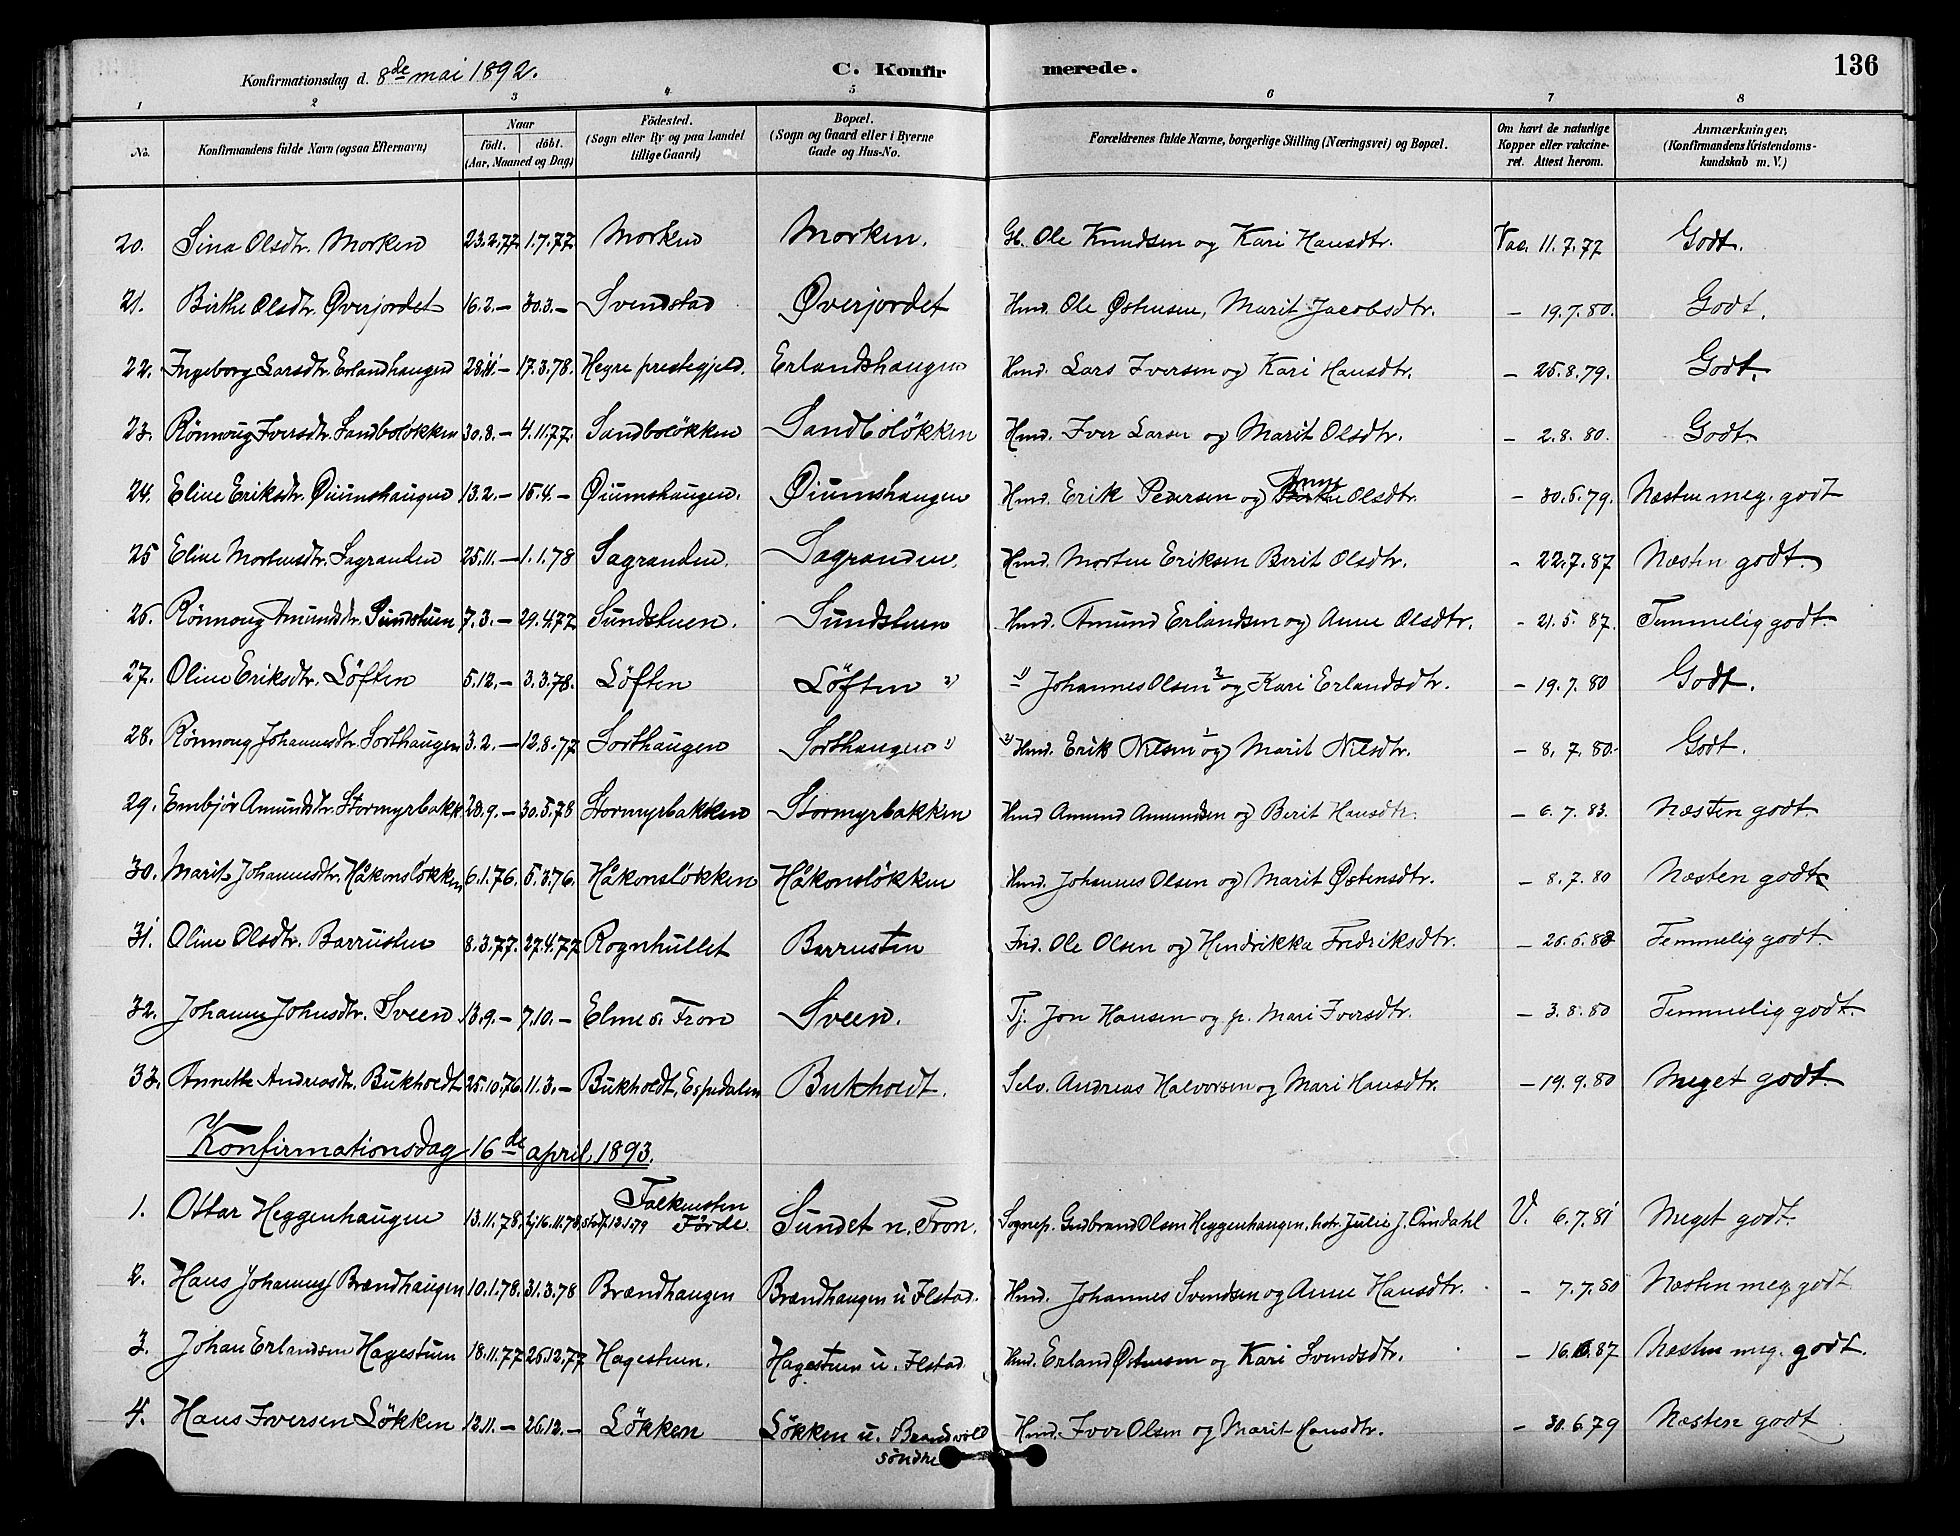 Konfirmationsdag d. 8de mai 1892. C. Konfirmerede. 136
1 2 3 4 5 6 7 8
No. Konfirmandens fulde Navn (ogsaa Efternavn) Naar födt. döbt. (Aar, Maaned og Dag) Födested. (Sogn eller By og paa Landet tillige Gaard) Bopæl. (Sogn og Gaard eller i Byerne Gade og Hus-No. Forældrenes fulde Navne, borgerlige Stilling (Næringsvei) og Bopæl. Om havt de naturlige Kopper eller vakcineret. Attest herom. Anmærkninger, (Konfirmandens Kristendomskundskab m. V.)
20. Sina Olsdtr. Morken 23.2.77 1.7.77. Morken Morken. Gb. Ole Knudsen og Kari Hansdtr. Vac. 11.7.77 Godt.
21. Birthe Olsdtr. Øverjordet 16.2.— 30.3.— Svendstad Øverjordet Hmd. Ole Østensen, Marit Jacobsdtr. — 19.7.80. Godt.
22. Ingeborg Larsdtr. Erlandhaugen 28.11.— 17.3.78. Hegre prestegjeld. Erlandshaugen Hmd. Lars Iversen og Kari Hansdtr. — 25.8.79. Godt.
23. Rönnoug Iversdtr. Sandbolökken 30.8.— 4.11.77. Sandbolökken Sandbolökken Hmd. Iver Larsen og Marit Olsdtr. — 2.8.80. Godt
24. Eline Eriksdtr. Øiumshaugen 13.2.— 15.4.— Øiumshaugen. Øiumshaugen Hmd. Erik Pedersen og Anne Olsdtr. — 30.6.79. Næsten meg. godt
25 Eline Mortensdtr. Sagranden 25.11.— 1.1.78 Sagranden. Sagranden. Hmd. Morten Eriksen Berit Olsdtr. — 22.7.87 Næsten godt.
26. Rönnoug Amundsdtr. Sundstuen 7.3.— 29.4.77. Sundstuen. Sundstuen Hmd. Amund Erlandsen og Anne Olsdtr. — 21.5.87. Temmelig godt.
27. Oline Eriksdtr. Löften 5.12.— 3.3.78. Löften Löften 2) 1) Johannes Olsen 2 og Kari Erlandsdtr. — 19.7.80 Godt.
28. Rönnoug Johannesdtr. Sorthaugen 3.2.— 12.8.77 Sorthaugen Sorthaugen 1) 2) Hmd. Erik Nilsen 1 og Marit Nilsdtr. — 8.7.80.- Godt.
29. Embjör Amundsdtr. Stormyrbakk. 28.9.— 30.5.78 Stormyrbakken Stormyrbakken Hmd Amund Amundsen og Berit Hansdtr. — 6.7.83. Næsten godt.
30. Marit Johannesdtr. Håkonslökken 6.1.76. 5.3.76. Håkonslökken Håkonslökken Hmd. Johannes Olsen og Marit Østensdtr. — 8.7.80 Næsten godt
31. Oline Olsdtr. Barrusten 8.3.77. 27.4.77 Rognhullet Barrusten Ind. Ole Olsen og Hendrikka Fredriksdtr. — 26.6.83 Temmelig godt.
32. Johanne Johnsdtr. Sveen 13.9.— 7.10.— Elme s. Fron Sveen. Tj. Jon Hansen og p. Mari Iversdtr. — 3.8.80 Temmelig godt.
33. Annette Andreasdtr. Bukholdt 25.10.76 11.3.— Bukholdt, Espedalen Bukholdt. Selv. Andreas Halvorsen og Mari Hansdtr. — 19.9.80 Meget godt.
Konfirmationsdag 16de april, 1893.
1. Ottar Heggenhaugen 13.11.78. hj. 16.11.78, stadf. 12.1.79 Falkensten Förde Sundet n. Fron. Sognep. Gudbrand Olsen Heggenhaugen, hstr. Julie J. Omdahl V. 6.7.81 Meget godt.
2. Hans Johannes. Brændhaugen 10.1.78. 31.3.78 Brændhaugen Brændhaugen u. Ilstad. Hmd. Johannes Svendsen og Anne Hansdtr. — 7.7.80 Næsten meg. godt
3. Johan Erlandsen Hagestuen 18.11.77 26.12.77 Hagestuen. Hagestuen u. Ilstad Hmd. Erland Østensen og Kari Svendsdtr. — 16.6.87 Næsten meg. godt.
4. Hans Iversen Lökken 12.11.— 26.12.— Lökken Lökken u. Brandvold söndre Hmd. Iver Olsen og Marit Hansdtr. — 30.6.79 Næsten godt